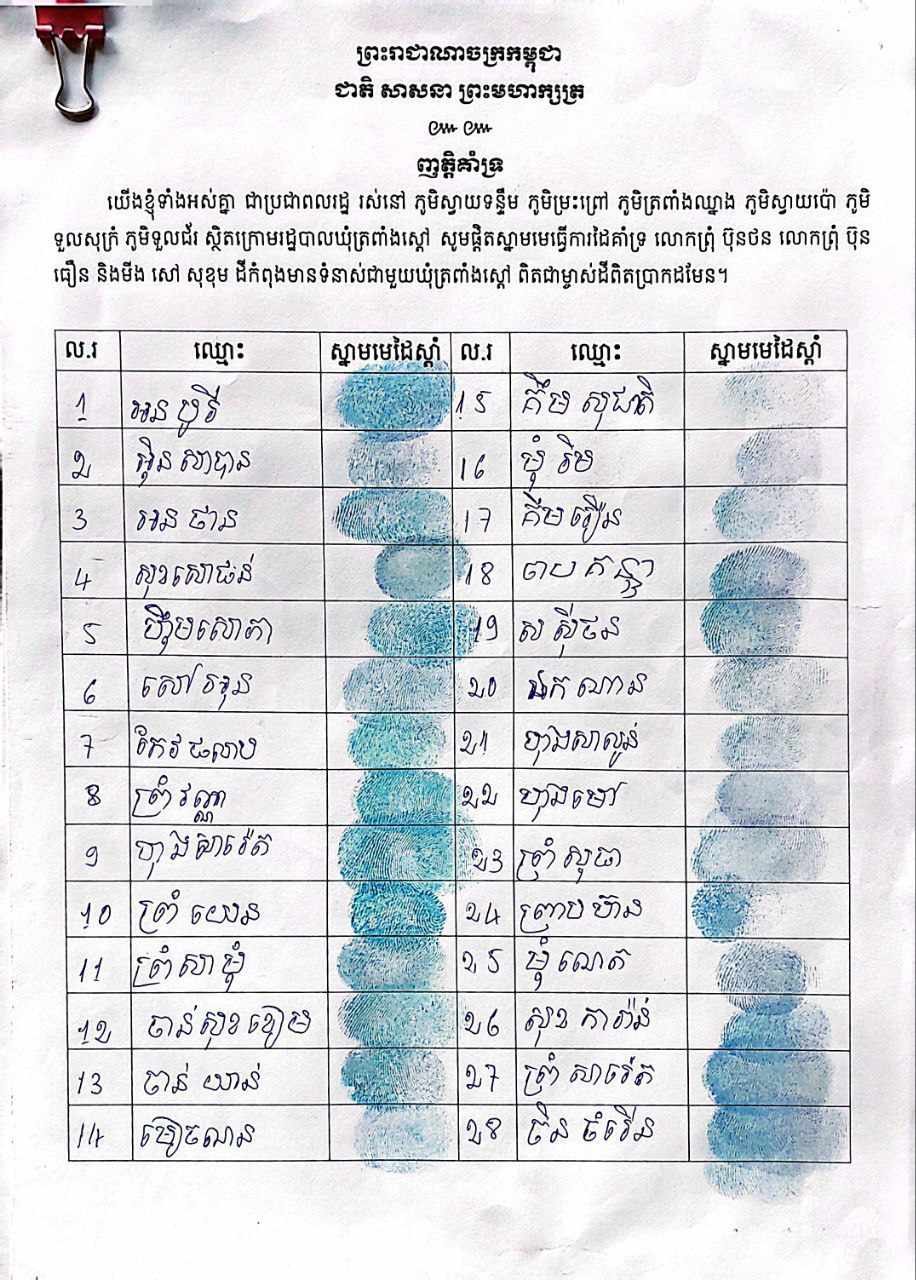 ព្រះរាជាណាចក្រកម្ពុជា
ជាតិ សាសនា ព្រះមហាក្សត្រ
ញត្តិគាំទ្រ
យើងខ្ញុំទាំងអស់គ្នា ជាប្រជាពលរដ្ឋ រស់នៅ ភូមិស្វាយទន្ទឹម ភូមិម្រះព្រៅ ភូមិត្រពាំងឈ្នាង ភូមិស្វាយប៉ោ ភូមិ
ទួលសុក្រំ ភូមិទួលជ័រ ស្ថិតក្រោមរដ្ឋបាលឃុំត្រពាំងស្ដៅ សូមផ្ដិតស្នាមមេធ្វើការដៃគាំទ្រ លោកព្រុំ ប៊ុនថន លោកព្រុំ ប៊ុន
ធឿន និងមីង សៅ សុខុម ដីកំពុងមានទំនាស់ជាមួយឃុំត្រពាំងស្ដៅ ពិតជាម្ចាស់ដីពិតប្រាកដមែន។
ល.រ ឈ្មោះ ស្នាមមេដៃស្ដាំ ល.រ ឈ្មោះ ស្នាមមេដៃស្ដាំ
1 15 គឹម សុជាតិ
2 16 ម៉ុំ រឹម
3 អន ថាន 17 គឹម រឿន
4 សុខ សោផន់ 18
5 ហ៊ឹម សោភា 19
6 សៅ អុន 20 ណាន
7 កែវ ផលាប 21 ហុង សាលូន់
8 ព្រំ វណ្ណា 22 ហុង មៅ
9 ហុង សារ៉េត 23 ព្រំ សុធា
10 ព្រំ យេន 24 ព្រាប ម៉ាន
11 ព្រំ សា ម៉ុំ 25 ម៉ុំ ណេត
12 ចាន់ សុខ ខៀម 26 សុខ ការ៉ាន់
13 ចាន់ យាន់ 27 ព្រំ សារ៉េត
14 28 ច្រឹន ចំរើន